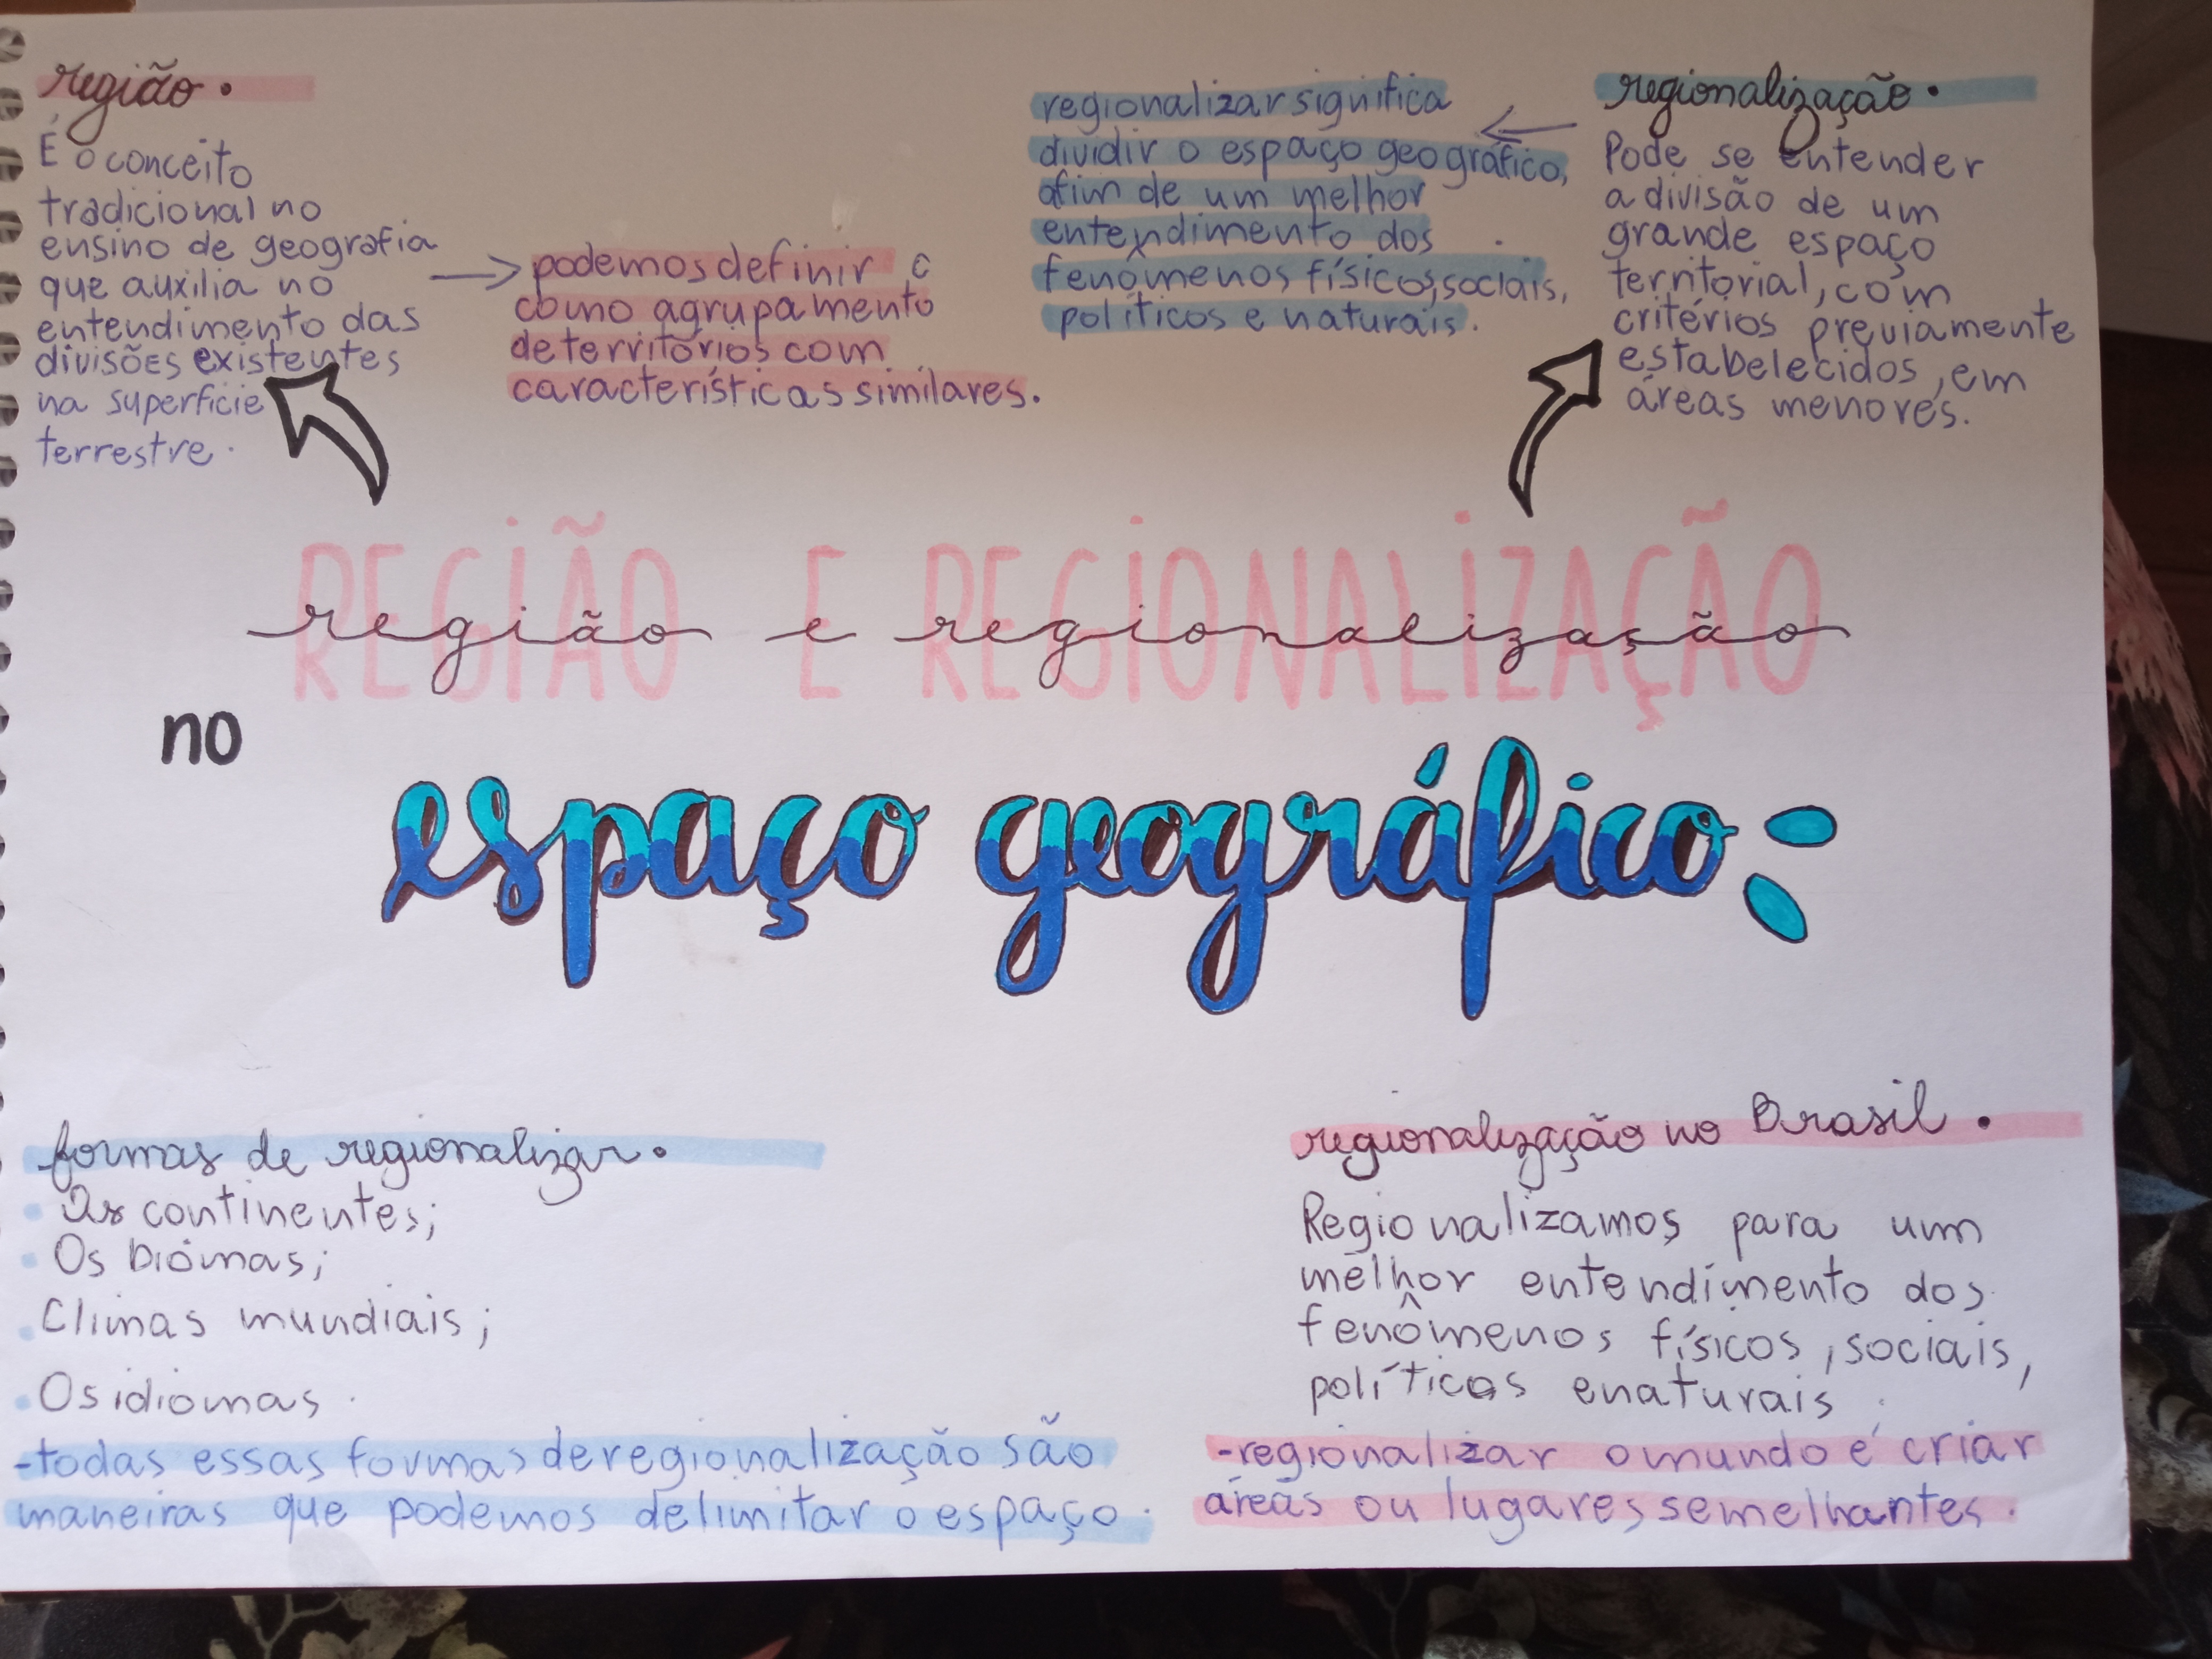 região.
É o conceito
tradicional no
ensino de geografia
que auxilia no
entendimento das
divisões existentes
na superfície
terrestre.
podemos definir
como agrupamento
de territórios com
características similares.
regionalizar significa
dividir o espaço geográfico,
afim de um melhor
entendimento dos
fenômenos físicos, sociais,
políticos e naturais.
regionalização.
Pode se entender
a divisão de um
grande espaço
territorial, com
critérios previamente
estabelecidos, em
áreas menores.
REGIÃO E REGIONALIZAÇÃO
região e regionalização
no
espaço geográfico:
formas de regionalizar.
Os continentes;
Os biomas;
Climas mundiais;
Os idiomas.
-todas essas formas de regionalização são
maneiras que podemos delimitar o espaço.
regionalização no Brasil.
Regionalizamos para um
melhor entendimento dos
fenômenos físicos, sociais,
políticos e naturais.
-regionalizar o mundo é criar
áreas ou lugares semelhantes.